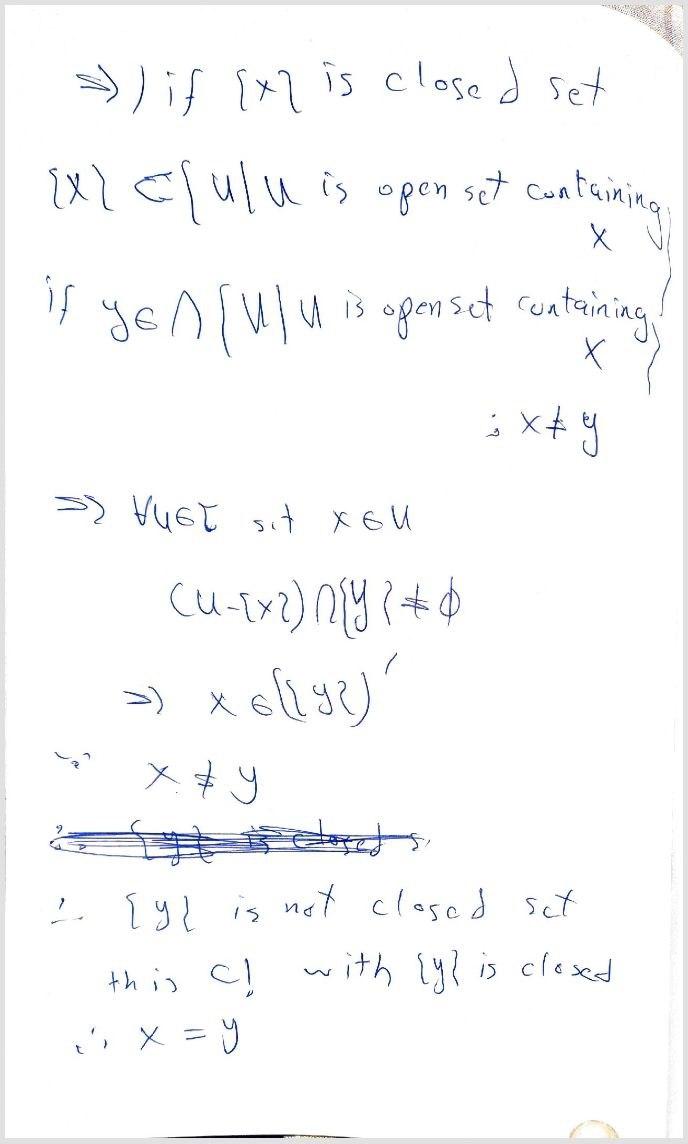 ⇒) if {x} is closed set
{x} ⊂ {U|U is open set containing
x}
if y∈∩{U|U is open set containing
x}
; x≠y
⇒ ∀U∈τ s.t x∈U
(U-{x})∩{y}≠ϕ
⇒ x∈({y})′
∵ x≠y
∴ {y} is not closed set
this C! with {y} is closed
∴ x = y